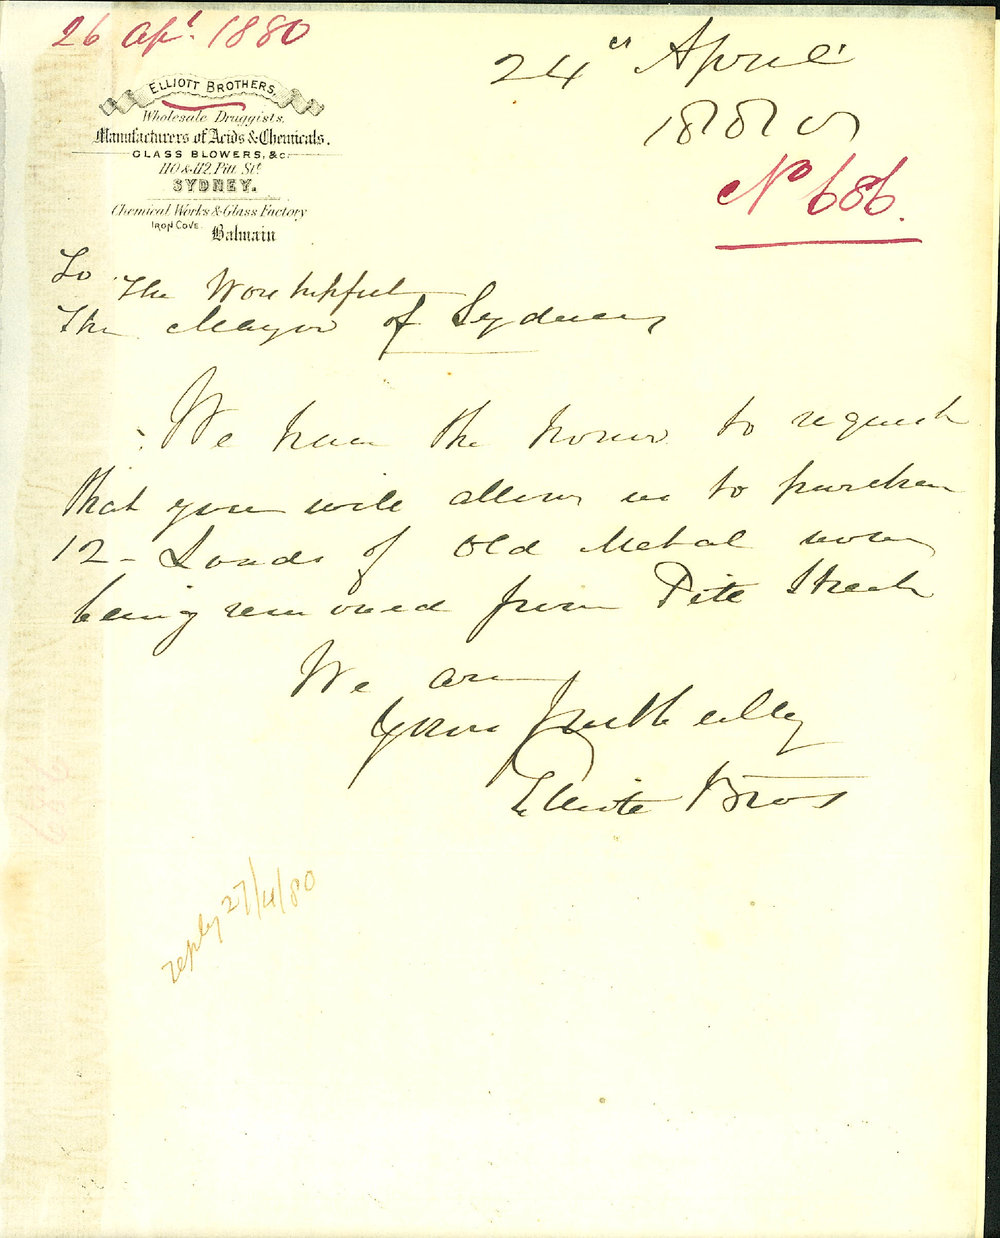 26 Apl. 1880
ELLIOTT BROTHERS,
Wholesale Druggists,
Manufacturers of Acids & Chemicals.
GLASS BLOWERS, &c.
110 & 112, Pitt St.
SYDNEY.
Chemical Works & Glass Factory
IRON COVE Balmain
24 April
1880
No 686.
To The Worshipful
The Mayor of Sydney
We have the honor to request
that you will allow us to purchase
12 - Loads of Old Metal now
being removed from Pitt Street
We are
Yours faithfully
Elliott Bros
reply 27/4/80